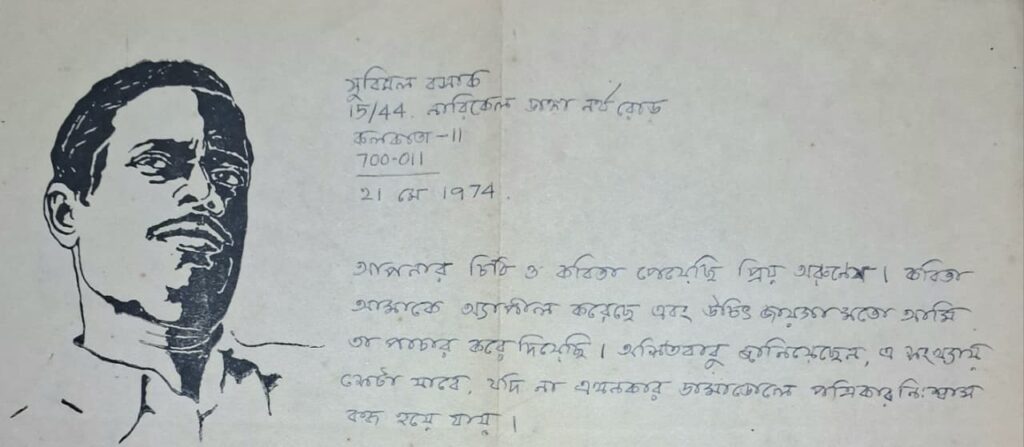 সুবিমল বসাক
15/44. নারিকেল ডাঙ্গা নর্থ রোড
কলকাতা-11
700-011
21 মে 1974.
আপনার চিঠি ও কবিতা পেয়েছি প্রিয় অরুণেশ। কবিতা
আমাকে অ্যাপীল করেছে এবং উচিৎ জায়গা মতো আমি
তা পাচার করে দিয়েছি। অসিতবাবু জানিয়েছেন, এ সংখ্যায়
সেটা যাবে, যদি না এখনকার ডামাডোলে পত্রিকার নিঃশ্বাস
বন্ধ হয়ে যায়।